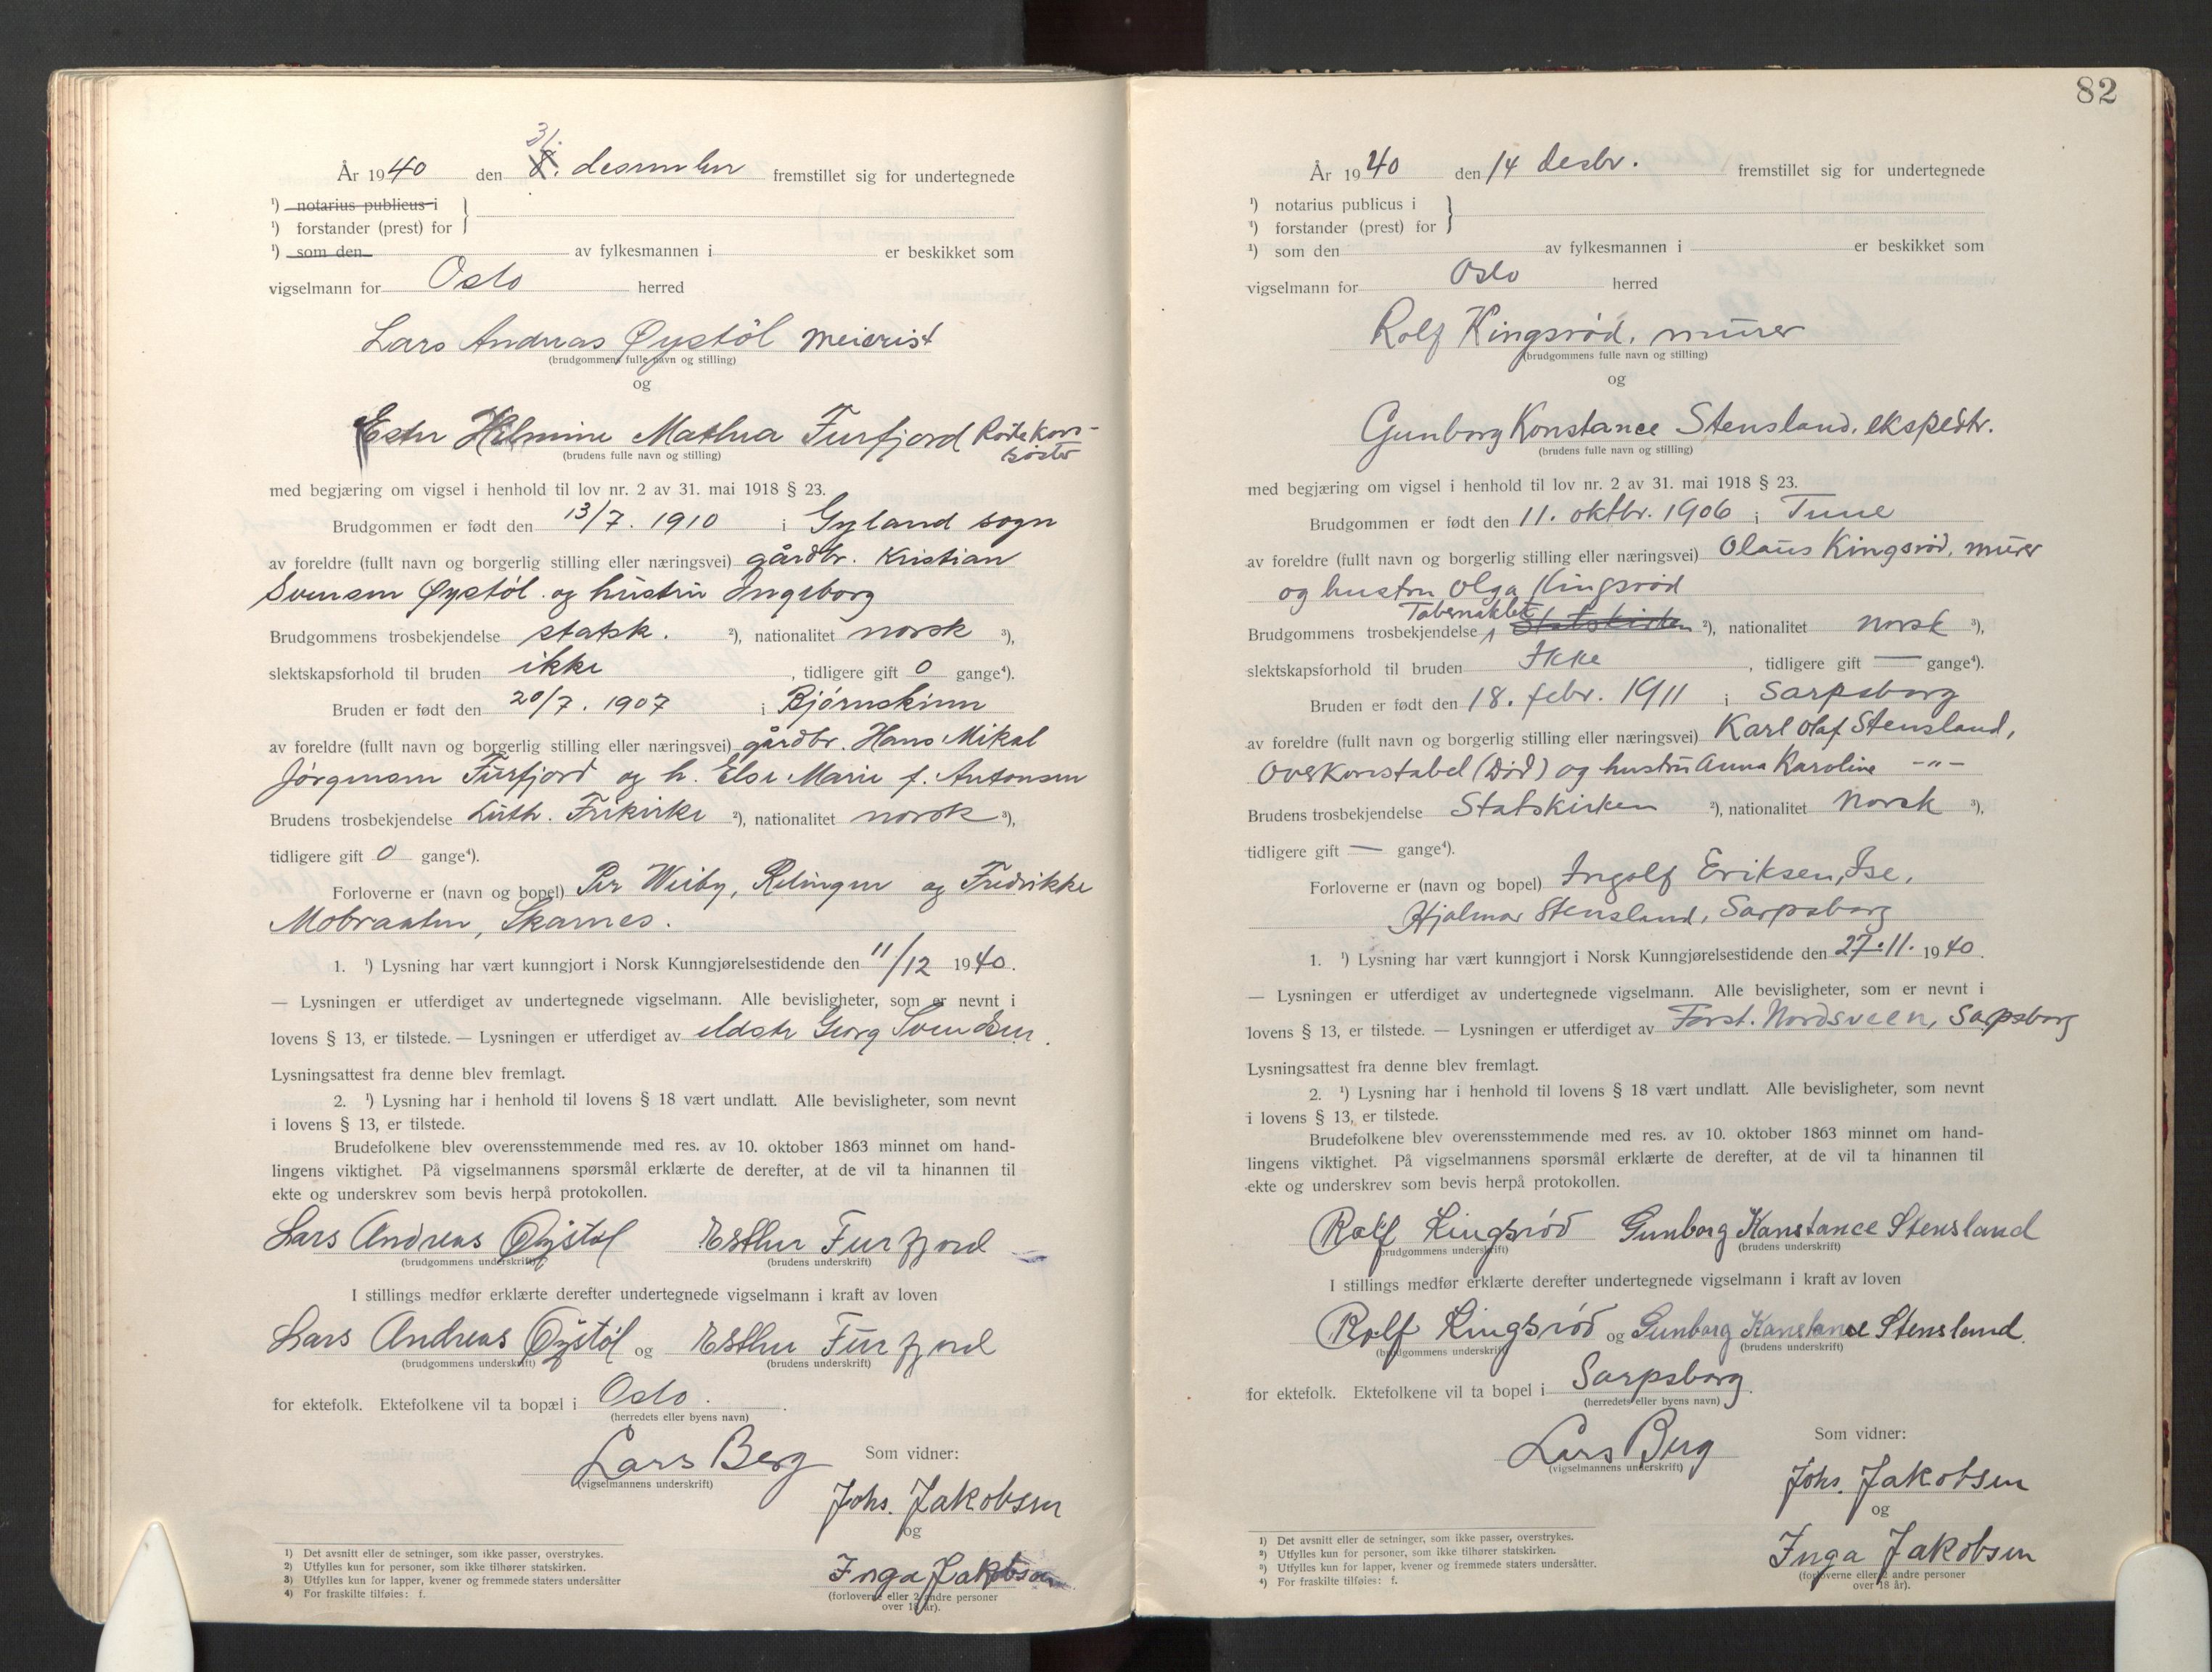 År 1940 den 31. desember fremstillet sig for undertegnede
¹) notarius publicus i
¹) forstander (prest) for
¹) som den av fylkesmannen i er beskikket som
vigselmann for Oslo herred
Lars Andreas Øystöl meierist
(brudgommens fulle navn og stilling)
og
Ester Helmine Mathea Furfjord Röde kors-
söster
(brudens fulle navn og stilling)
med begjæring om vigsel i henhold til lov nr. 2 av 31. mai 1918 § 23.
Brudgommen er født den 13/7. 1910 i Gyland sogn
av foreldre (fullt navn og borgerlig stilling eller næringsvei) gårdbr. Kristian
Svensen Øystöl og hustru Ingeborg
Brudgommens trosbekjendelse statsk. ²), nationalitet norsk ³),
slektskapsforhold til bruden ikke , tidligere gift 0 gange⁴).
Bruden er født den 20/7. 1907 i Bjørnskinn
av foreldre (fullt navn og borgerlig stilling eller næringsvei) gårdbr. Hans Mikal
Jörgensen Furfjord og h. Else Marie f. Antonsen
Brudens trosbekjendelse Luth. Frikirke ²), nationalitet norsk ³),
tidligere gift 0 gange⁴).
Forloverne er (navn og bopel) Per Weiby, Relingen og Fredrikke
Mobraaten, Skarnes.
1. ¹) Lysning har vært kunngjort i Norsk Kunngjørelsestidende den 11/12 1940.
— Lysningen er utferdiget av undertegnede vigselmann. Alle bevisligheter, som er nevnt i
lovens § 13, er tilstede. — Lysningen er utferdiget av eldste Georg Svendsen.
Lysningsattest fra denne blev fremlagt.
2. ¹) Lysning har i henhold til lovens § 18 vært undlatt. Alle bevisligheter, som nevnt
i lovens § 13, er tilstede.
Brudefolkene blev overensstemmende med res. av 10. oktober 1863 minnet om hand-
lingens viktighet. På vigselmannens spørsmål erklærte de derefter, at de vil ta hinannen til
ekte og underskrev som bevis herpå protokollen.
Lars Andreas Øystøl Esther Furfjord
(brudgommens underskrift) (brudens underskrift)
I stillings medfør erklærte derefter undertegnede vigselmann i kraft av loven
Lars Andreas Øystøl og Esther Furfjord
(brudgommens underskrift) (brudens underskrift)
for ektefolk. Ektefolkene vil ta bopæl i Oslo.
(herredets eller byens navn)
Lars Berg Som vidner:
(vigselmannens underskrift)
Johs. Jakobsen
og
Inga Jakobsen
(forloverne eller 2 andre personer
over 18 år).
1) Det avsnitt eller de setninger, som ikke passer, overstrykes.
2) Utfylles kun for personer, som ikke tilhører statskirken.
3) Utfylles kun for lapper, kvener og fremmede staters undersåtter
4) For fraskilte tilføies: f.
82
År 1940 den 14 desbr. fremstillet sig for undertegnede
¹) notarius publicus i
¹) forstander (prest) for
¹) som den av fylkesmannen i er beskikket som
vigselmann for Oslo herred
Rolf Kingsrød, murer
(brudgommens fulle navn og stilling)
og
Gunborg Konstance Stensland, ekspedtr.
(brudens fulle navn og stilling)
med begjæring om vigsel i henhold til lov nr. 2 av 31. mai 1918 § 23.
Brudgommen er født den 11. oktbr. 1906 i Tune
av foreldre (fullt navn og borgerlig stilling eller næringsvei) Olaus Kingsrød, murer
og hustru Olga Kingsrød
Brudgommens trosbekjendelse Tabernaklet Statskirken ²), nationalitet norsk ³),
slektskapsforhold til bruden Ikke , tidligere gift — gange⁴).
Bruden er født den 18. febr. 1911 i Sarpsborg
av foreldre (fullt navn og borgerlig stilling eller næringsvei) Karl Olaf Stensland,
Overkonstabel (död) og hustru Anna Karoline -"-
Brudens trosbekjendelse Statskirken ²), nationalitet norsk ³),
tidligere gift — gange⁴).
Forloverne er (navn og bopel) Ingolf Eriksen, Ise,
Hjalmar Stensland, Sarpsborg
1. ¹) Lysning har vært kunngjort i Norsk Kunngjørelsestidende den 27.11. 1940.
— Lysningen er utferdiget av undertegnede vigselmann. Alle bevisligheter, som er nevnt i
lovens § 13, er tilstede. — Lysningen er utferdiget av Forst. Nordsveen, Sarpsborg
Lysningsattest fra denne blev fremlagt.
2. ¹) Lysning har i henhold til lovens § 18 vært undlatt. Alle bevisligheter, som nevnt
i lovens § 13, er tilstede.
Brudefolkene blev overensstemmende med res. av 10. oktober 1863 minnet om hand-
lingens viktighet. På vigselmannens spørsmål erklærte de derefter, at de vil ta hinannen til
ekte og underskrev som bevis herpå protokollen.
Rolf Kingsrød Gunborg Konstance Stensland
(brudgommens underskrift) (brudens underskrift)
I stillings medfør erklærte derefter undertegnede vigselmann i kraft av loven
Rolf Kingsrød og Gunborg Konstance Stensland.
(brudgommens underskrift) (brudens underskrift)
for ektefolk. Ektefolkene vil ta bopel i Sarpsborg.
(herredets eller byens navn)
Lars Berg Som vidner:
(vigselmannens underskrift)
Johs. Jakobsen
og
Inga Jakobsen
(forloverne eller 2 andre personer
over 18 år).
1) Det avsnitt eller de setninger, som ikke passer, overstrykes.
2) Utfylles kun for personer, som ikke tilhører statskirken.
3) Utfylles kun for lapper, kvener og fremmede staters undersåtter.
4) For fraskilte tilføies: f.